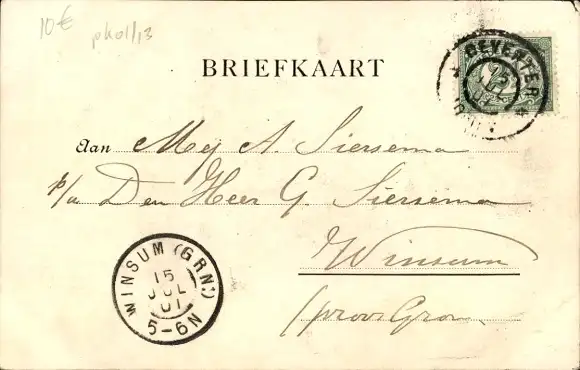 10€
pk01/13
BRIEFKAART
DEVENTER
15
JUL
01
Aan Mej A. Siersema
p/a Den Heer G. Siersema
Winsum
(prov. Gron.
WINSUM (GRN:)
15
JUL
01
5-6N